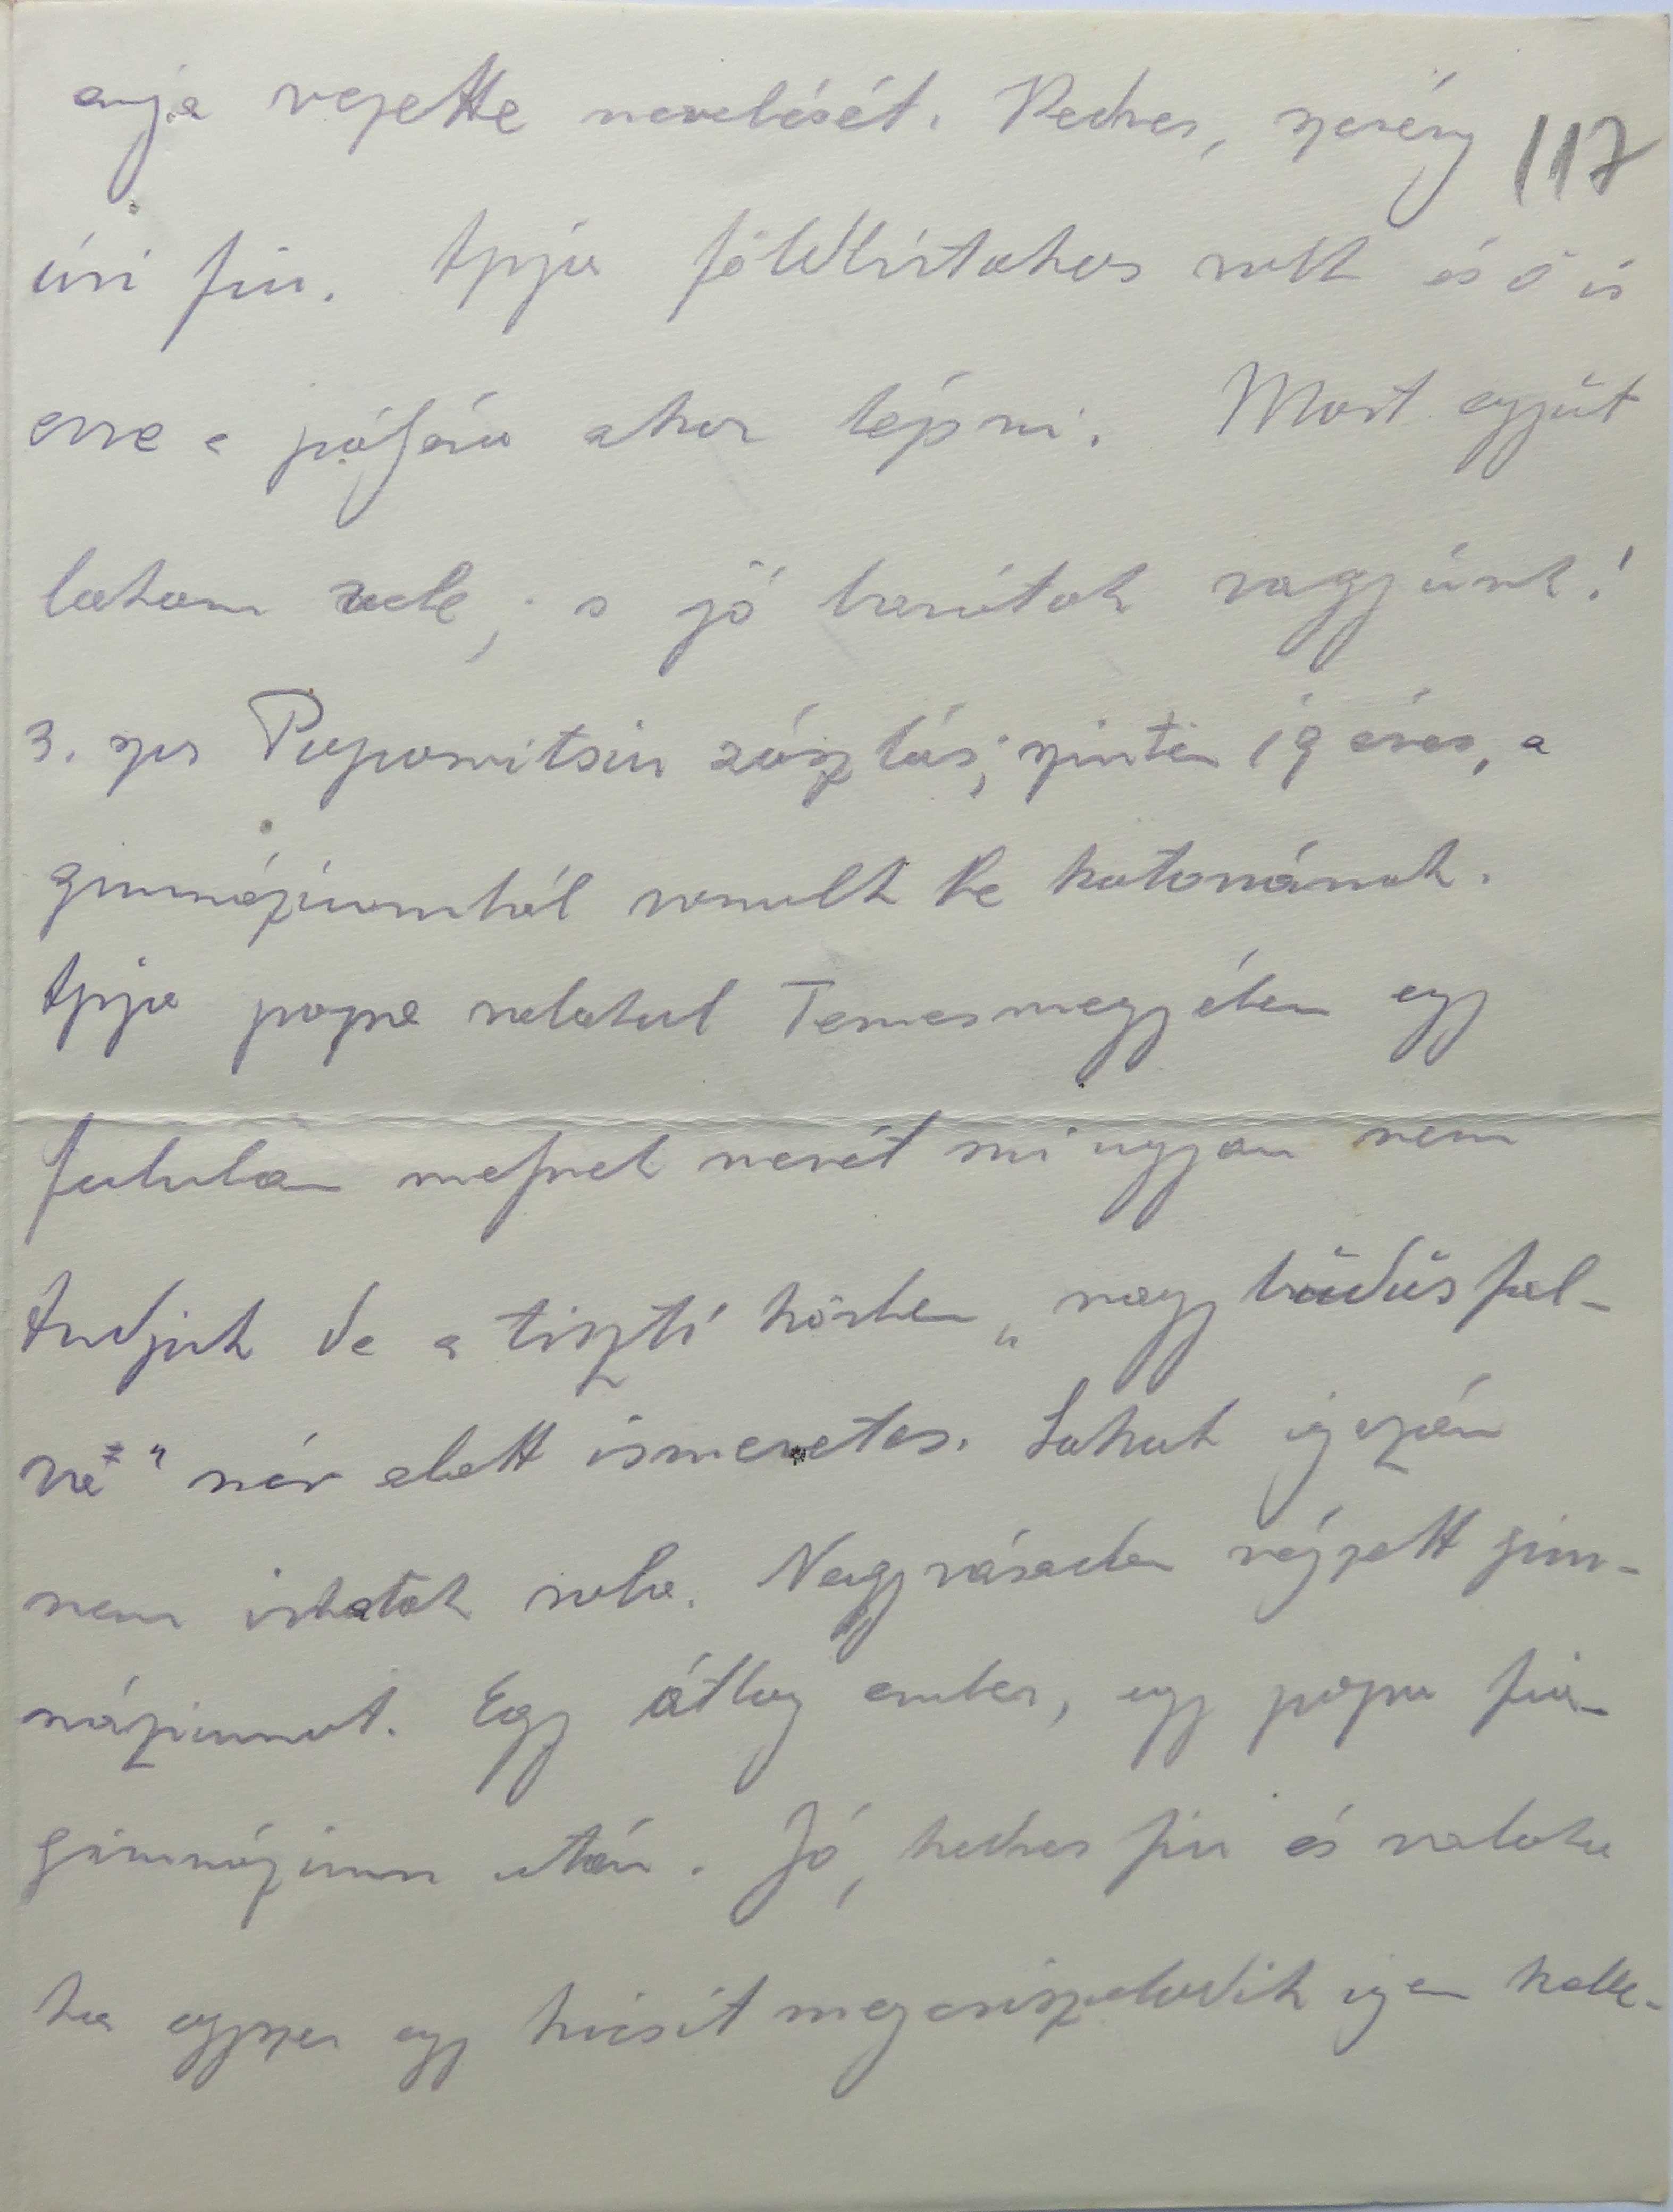 anyja vezette nevelését. Kedves, szerény 117
úri fiu. Apja földbirtokos volt és ő is
erre a pályára akar lépni. Most együt
lakom vele, s jó barátok vagyunk!
3. szor Popovitsiu zászlós, szintén 19 éves, a
gimnáziumból vonult be katonának.
Apja popa valahol Temesmegyében egy
faluban melynek nevét mi ugyan nem
tudjuk de a tiszti körben „nagy büdösfal-
va" név alatt ismeretes. Sokat igazán
nem irhatok róla. Nagyváradon végzett gim-
náziumot. Egy átlag ember, egy popa fia
gimnázium után. Jó, kedves fiu és valaha
ha egyszer egy kicsit megcsiszolódik igen kelle-